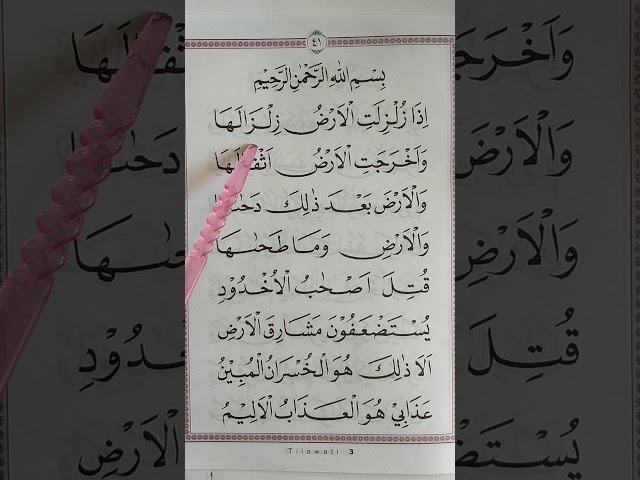 ٤١
بِسْمِ اللهِ الرَّحْمٰنِ الرَّحِيْمِ
اِذَا زُلْزِلَتِ الْاَرْضُ زِلْزَالَهَا
وَاَخْرَجَتِ الْاَرْضُ اَثْقَالَهَا
وَالْاَرْضَ بَعْدَ ذٰلِكَ
وَالْاَرْضِ وَمَا طَحٰىهَا
قُتِلَ اَصْحٰبُ الْاُخْدُوْدِ
يُسْتَضْعَفُوْنَ مَشَارِقَ الْاَرْضِ
اَلَا ذٰلِكَ هُوَ الْخُسْرَانُ الْمُبِيْنُ
عَذَابِيْ هُوَ الْعَذَابُ الْاَلِيْمُ
Tilawati 3